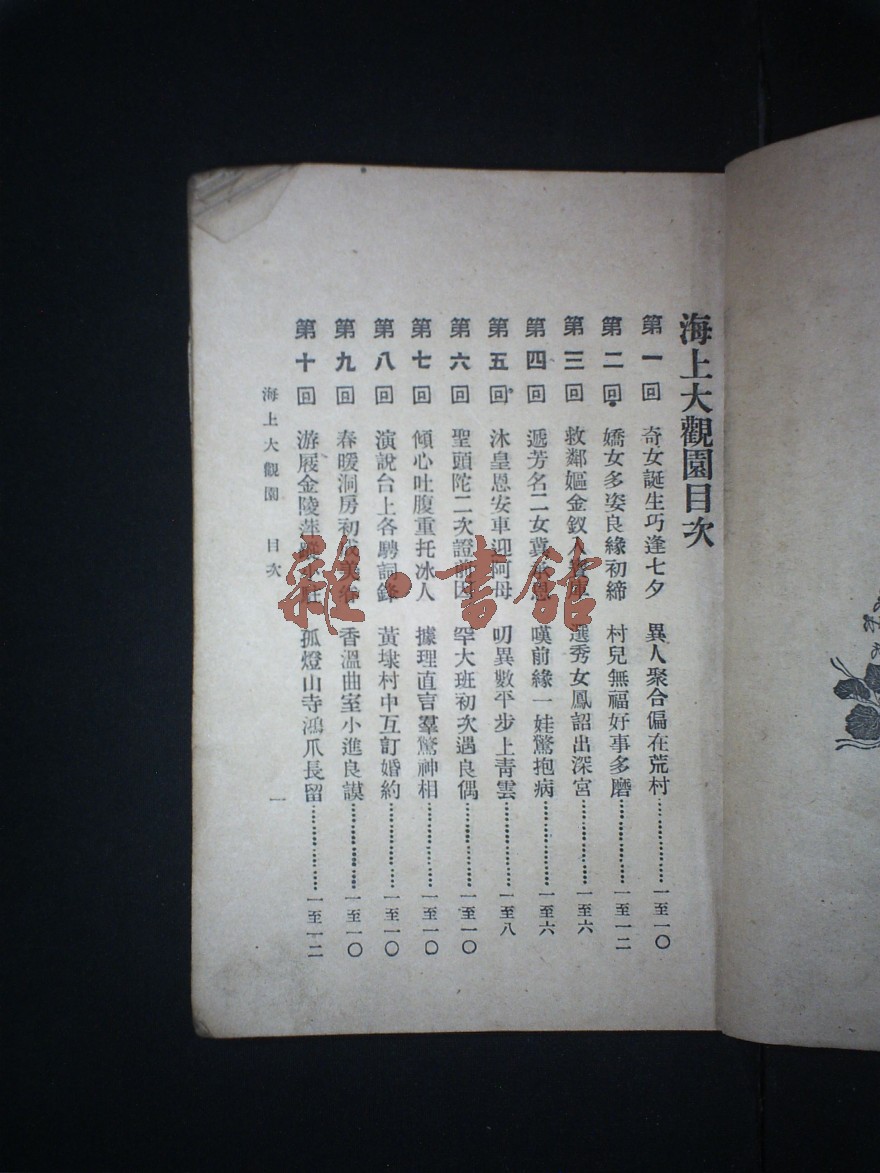 海上大觀園目次
第一回 奇女誕生巧逢七夕 異人聚合偏在荒村……………一至一〇
第二回 嬌女多姿良緣初締 村兒無福好事多磨……………一至一二
第三回 救鄰嫗金釵入 庫 選秀女鳳詔出深宮……………一至六
第四回 遞芳名二女冀承恩 嘆前緣一娃驚抱病……………一至六
第五回 沐皇恩安車迎阿母 叨異數平步上靑雲……………一至八
第六回 聖頭陀二次證前因 罕大班初次遇良偶……………一至一〇
第七回 傾心吐腹重托冰人 據理直言羣驚神相……………一至一〇
第八回 演說台上各騁詞鋒 黃埭村中互訂婚約……………一至一〇
第九回 春暖洞房初成美眷 香溫曲室小進良謨……………一至一〇
第十回 游屐金陵萍蹤小駐 孤燈山寺鴻爪長留……………一至一二
海上大觀園 目次 一
雜·書館